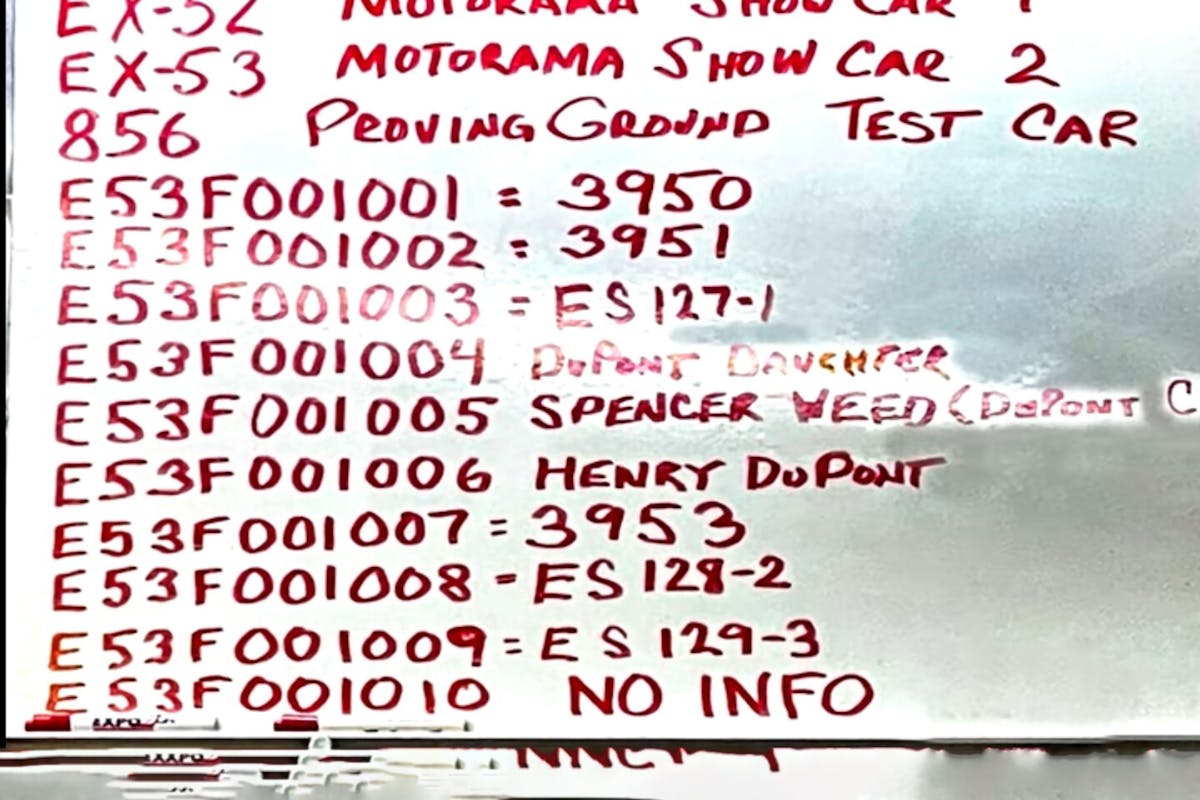 EX-52 MOTORAMA SHOW CAR 1
EX-53 MOTORAMA SHOW CAR 2
856 PROVING GROUND TEST CAR
E53F001001 = 3950
E53F001002 = 3951
E53F001003 = ES 127-1
E53F001004 DUPONT DAUGHTER
E53F001005 SPENCER WEED (DUPONT C
E53F001006 HENRY DUPONT
E53F001007 = 3953
E53F001008 - ES 128-2
E53F001009 = ES 129-3
E53F001010 NO INFO
EXPO